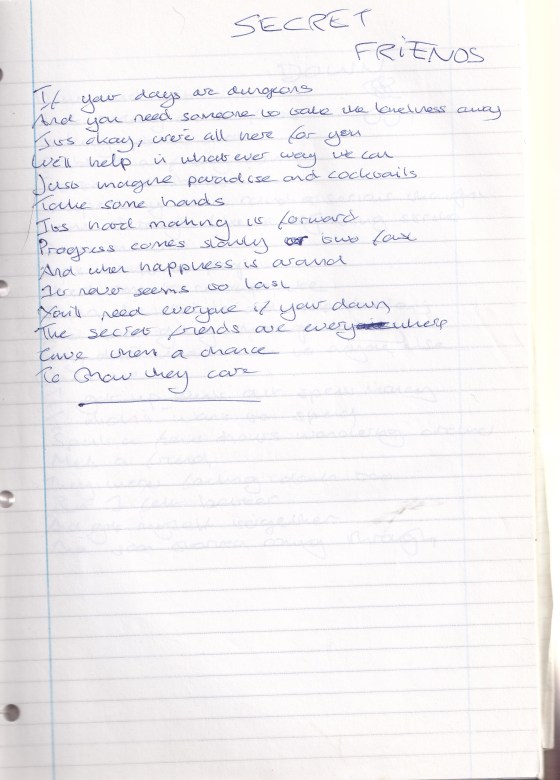 SECRET
FRIENDS
If your days are dungeons
And you need someone to take the loneliness away
It's okay, we're all here for you
We'll help in whatever way we can
Just imagine paradise and cocktails
Take some hands
Its hard making it forward
Progress comes slowly but fast
And when happiness is around
It never seems to last
You'll need everyone if your down
The secret friends are everywhere
Give them a chance
To Show they care